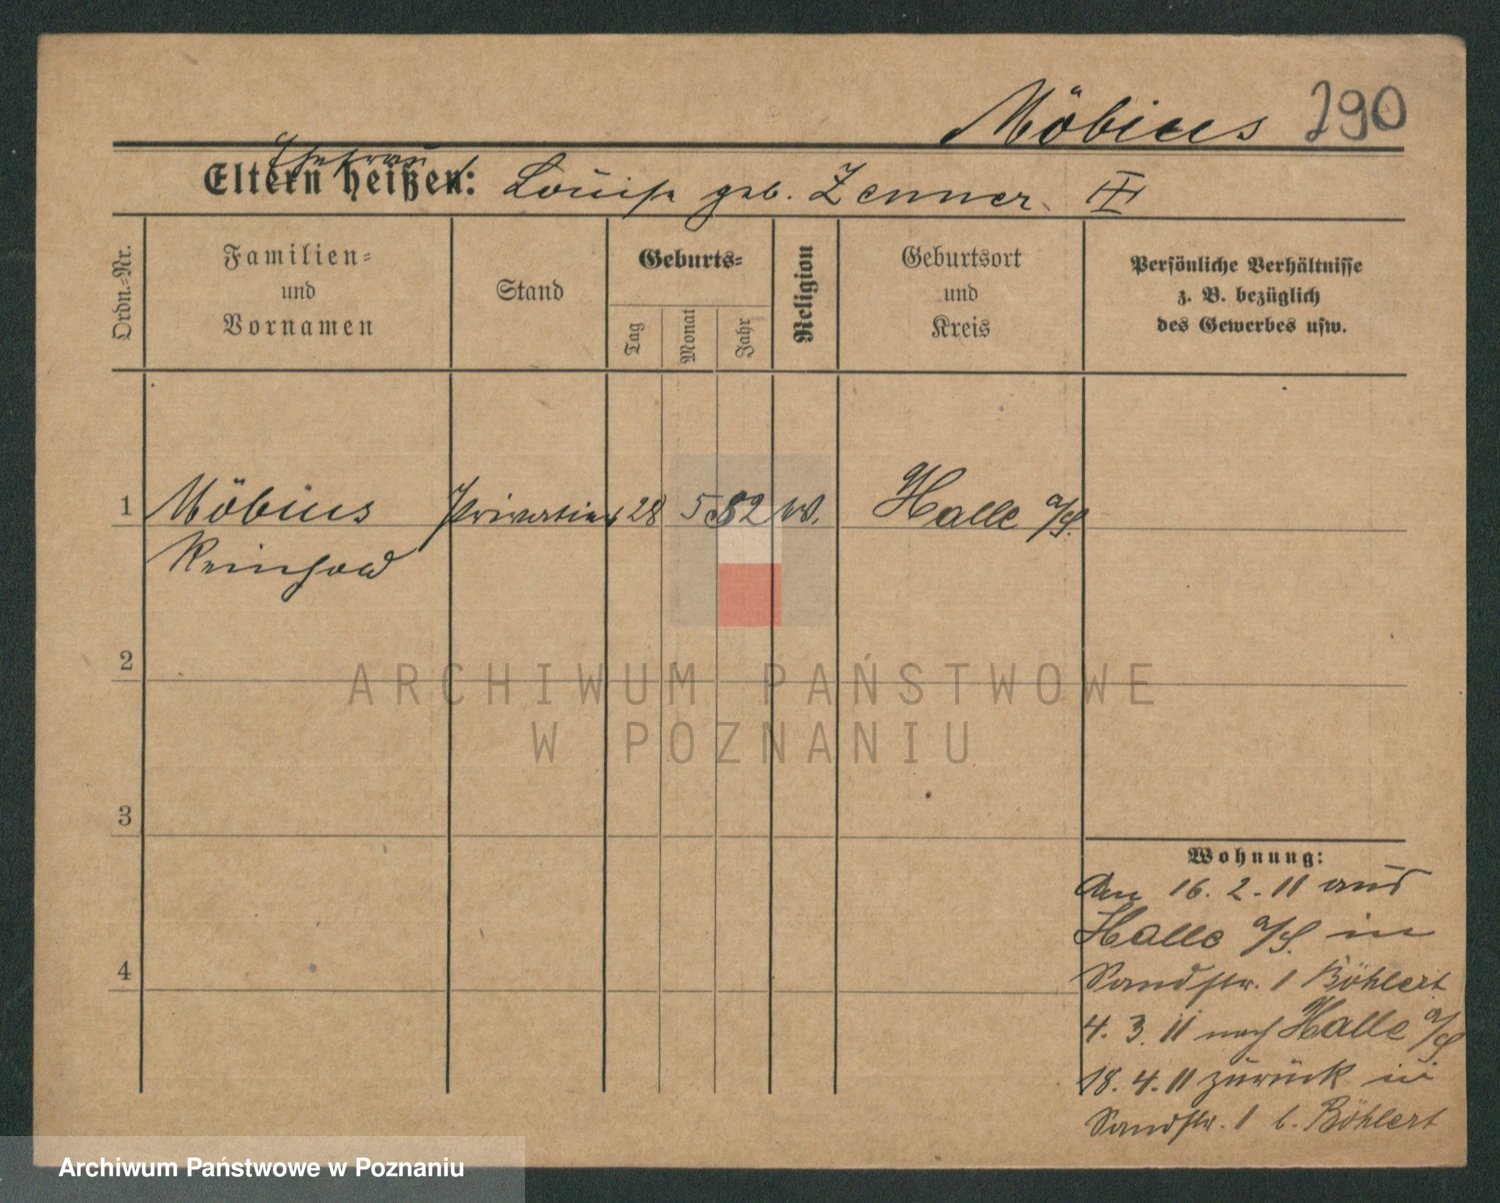 Möbius 290
Ehefrau
Eltern heißen: Louise geb. Zenner. III
Ordn.-Nr.
Familien-
und
Vornamen
Stand
Geburts-
Tag
Monat
Jahr
Religion
Geburtsort
und
Kreis
Persönliche Verhältnisse
z. B. bezüglich
des Gewerbes usw.
1 Möbius 28 5 82 Halle a/S.
Reinhold
2
3
4
Wohnung:
Am 16. 2. 11 aus
Halle a/S. in
Sandstr. 1 Böhlert
4. 3. 11 nach Halle a/S
18. 4. 11 zurück in
Sandstr. 1 b. Böhlert
ARCHIWUM PAŃSTWOWE
W POZNANIU
Archiwum Państwowe w Poznaniu